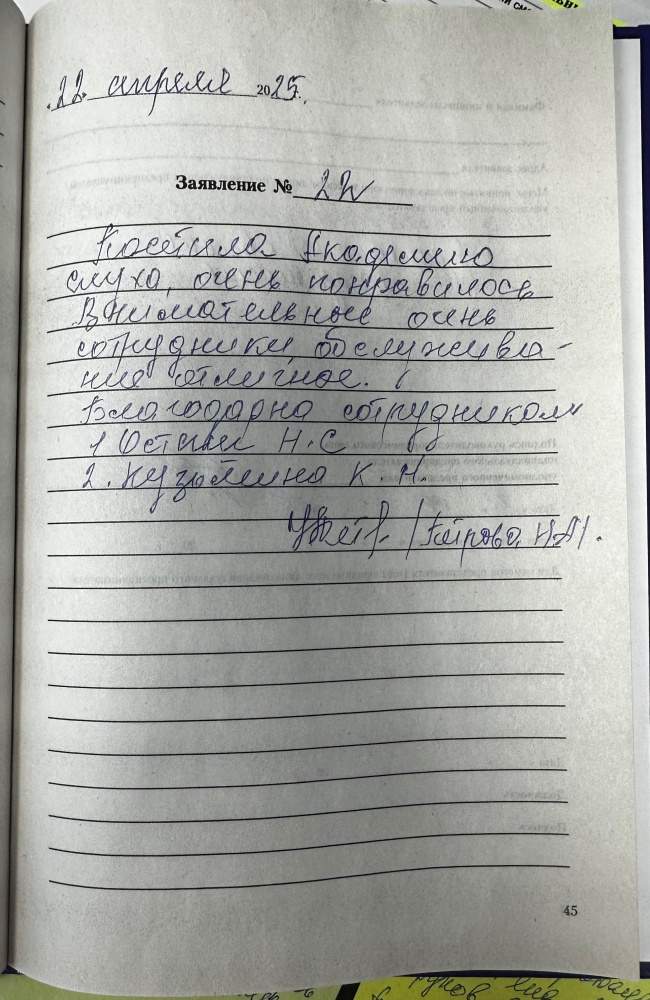 22. апреля 2025.
Заявление № 22
Посетила Академию
слуха, очень понравилось
Внимательные очень
сотрудники, обслужива-
ние отличное.
Благодарна сотрудникам
1. Н.С
2. Кузьмина К. Н.
/Петрова Н.А/.
45